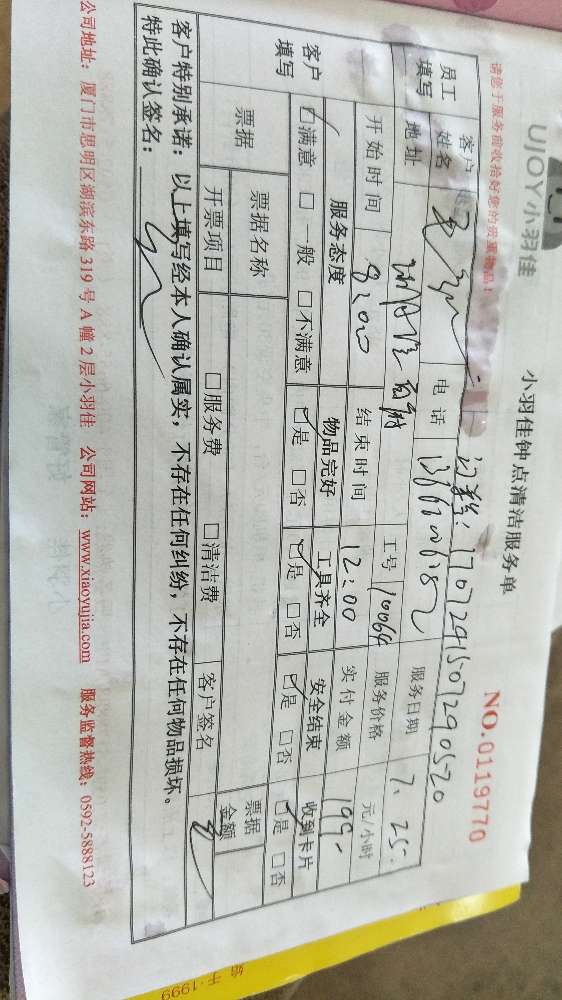 UJOY小羽佳
小羽佳钟点清洁服务单
NO.0119770
请您于服务前收拾好您的贵重物品!
员工填写
客户姓名
电话
服务日期 7.25.
地址
工号 10064
服务价格 元/小时
开始时间 8:00
结束时间 12:00
实付金额 199-
客户填写
服务态度 物品完好 工具齐全 安全结束 收到卡片
☑满意 □一般 □不满意 ☑是 □否 ☑是 □否 ☑是 □否 ☑是 □否
票据
票据名称
票据金额
开票项目 □服务费 □清洁费 客户签名
客户特别承诺：以上填写经本人确认属实，不存在任何纠纷，不存在任何物品损坏。
特此确认签名：
公司地址：厦门市思明区湖滨东路 319 号 A 幢 2 层小羽佳 公司网站：www.xiaoyujia.com 服务监督热线：0592-5888123